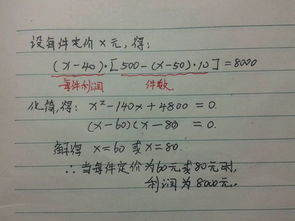 设每件定价x元，得：
(x-40)·[500-(x-50)·10]=8000
每件利润 件数
化简，得：x²-140x+4800=0.
(x-60)(x-80=0.
解得 x=60或x=80.
∴当每件定价为60元或80元时，
利润为8000元。